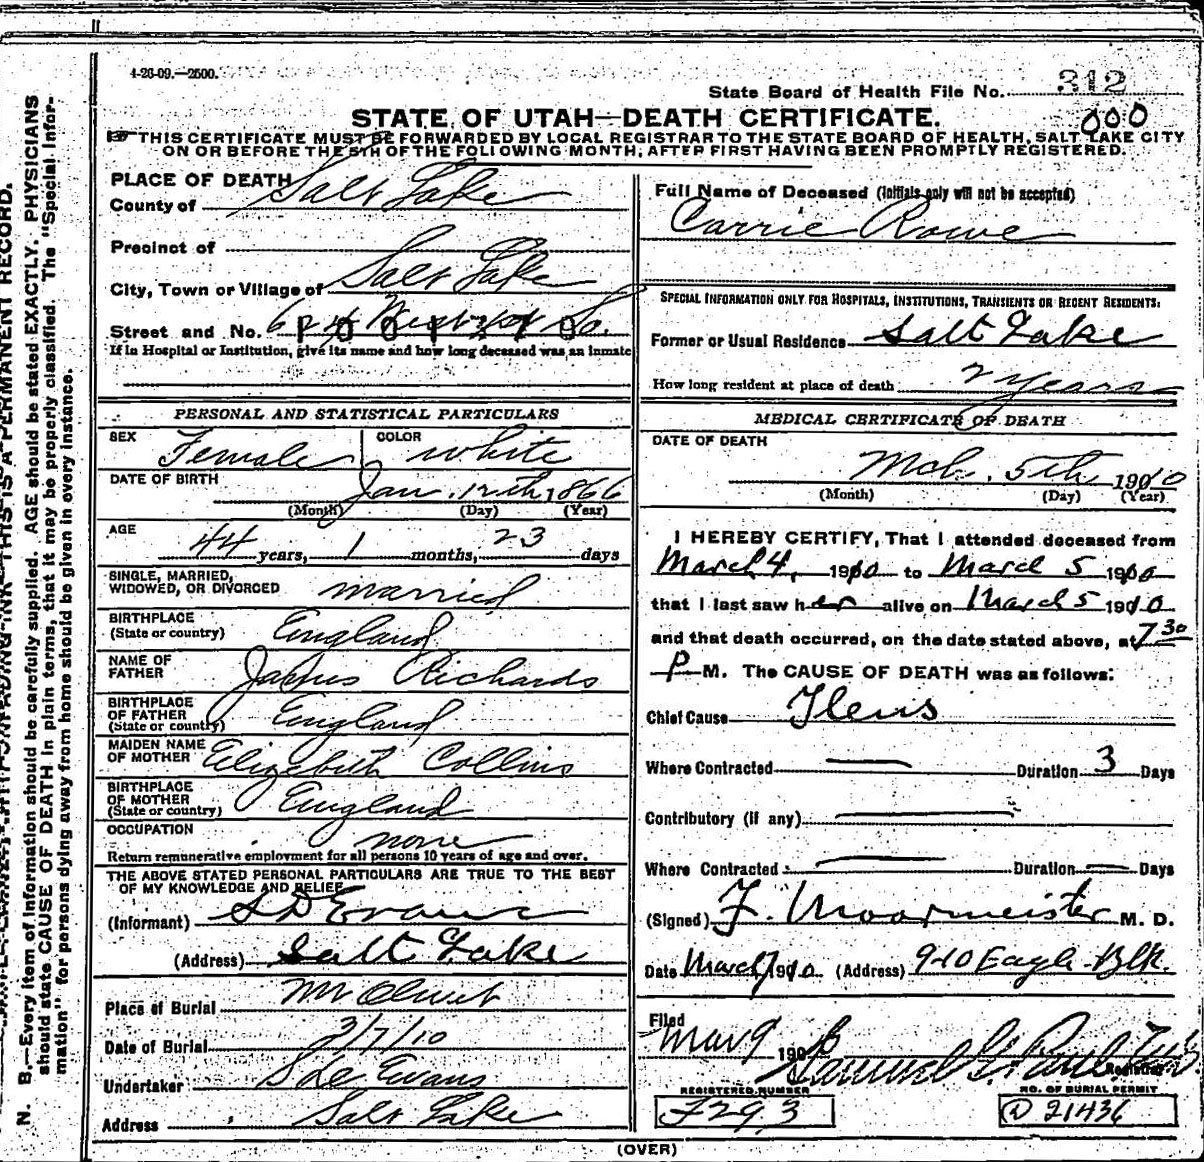 4-26-09.—2500.
State Board of Health File No. 312
000
STATE OF UTAH—DEATH CERTIFICATE.
THIS CERTIFICATE MUST BE FORWARDED BY LOCAL REGISTRAR TO THE STATE BOARD OF HEALTH, SALT LAKE CITY
ON OR BEFORE THE 5TH OF THE FOLLOWING MONTH, AFTER FIRST HAVING BEEN PROMPTLY REGISTERED.
PLACE OF DEATH
County of Salt Lake
Precinct of
City, Town or Village of Salt Lake
Street and No. So.
If in Hospital or Institution, give its name and how long deceased was an inmate
PERSONAL AND STATISTICAL PARTICULARS
SEX Female COLOR white
DATE OF BIRTH Jan. 12th 1866
(Month) (Day) (Year)
AGE 44 years, 1 months, 23 days
SINGLE, MARRIED,
WIDOWED, OR DIVORCED married
BIRTHPLACE
(State or country) England
NAME OF
FATHER Richards
BIRTHPLACE
OF FATHER
(State or country) England
MAIDEN NAME
OF MOTHER Elizebeth Collins
BIRTHPLACE
OF MOTHER
(State or country) England
OCCUPATION none
Return remunerative employment for all persons 10 years of age and over.
THE ABOVE STATED PERSONAL PARTICULARS ARE TRUE TO THE BEST
OF MY KNOWLEDGE AND BELIEF
(Informant) S D Evans
(Address) Salt Lake
Place of Burial Mt Olivet
Date of Burial 3/7/10
Undertaker S D Evans
Address Salt Lake
Full Name of Deceased (Initials only will not be accepted)
Carrie Rowe
SPECIAL INFORMATION ONLY FOR HOSPITALS, INSTITUTIONS, TRANSIENTS OR RECENT RESIDENTS:
Former or Usual Residence Salt Lake
How long resident at place of death 2 years
MEDICAL CERTIFICATE OF DEATH
DATE OF DEATH
Mch. 5th 1910
(Month) (Day) (Year)
I HEREBY CERTIFY, That I attended deceased from
March 4, 1910 to March 5 1910
that I last saw her alive on March 5 1910
and that death occurred, on the date stated above, at 7 30
P M. The CAUSE OF DEATH was as follows:
Chief Cause Ileus
Where Contracted — Duration 3 Days
Contributory (if any) —
Where Contracted — Duration — Days
(Signed) F. Moormeister M. D.
Date March 7 1910 (Address) 910 Eagle Blk.
Filed
Mar 9 190 Samuel G. Paul
Registrar
REGISTERED NUMBER
F293
NO. OF BURIAL PERMIT
D 21436
(OVER)
N. B.—Every item of information should be carefully supplied. AGE should be stated EXACTLY. PHYSICIANS
should state CAUSE OF DEATH in plain terms, that it may be properly classified. The "Special Infor-
mation" for persons dying away from home should be given in every instance.